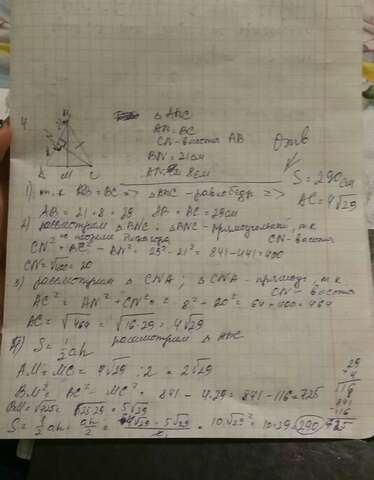 4.
△ABC
AB = BC
CN - высота AB
BN = 21 см
AN = 8 см
Отв
S = 290 см
AC = 4√29
1) т.к AB = BC => △ABC - равнобедр =>
AB = 21 + 8 = 29 BA = BC = 29 см
2) рассмотрим △BNC; △BNC - прямоугольный, т к CN - высота
по теореме Пифагора
CN² = BC² - BN² = 29² - 21² = 841 - 441 = 400
CN = √400 = 20
3) рассмотрим △CNA; △CNA - прямоуг, т к CN - высота
AC² = AN² + CN² = 8² + 20² = 64 + 400 = 464
AC = √464 = √16·29 = 4√29
S = 1/2 ah рассмотрим △ABC
AM = MC = 4√29 : 2 = 2√29
BM² = BC² - MC² = 841 - 4·29 = 841 - 116 = 725
BM = √725 = √25·29 = 5√29
S = 1/2 ah = ah/2 = 4√29 · 5√29 / 2 = 10√29² = 10·29 = 290
29
4
116
841
-116
725
A M C